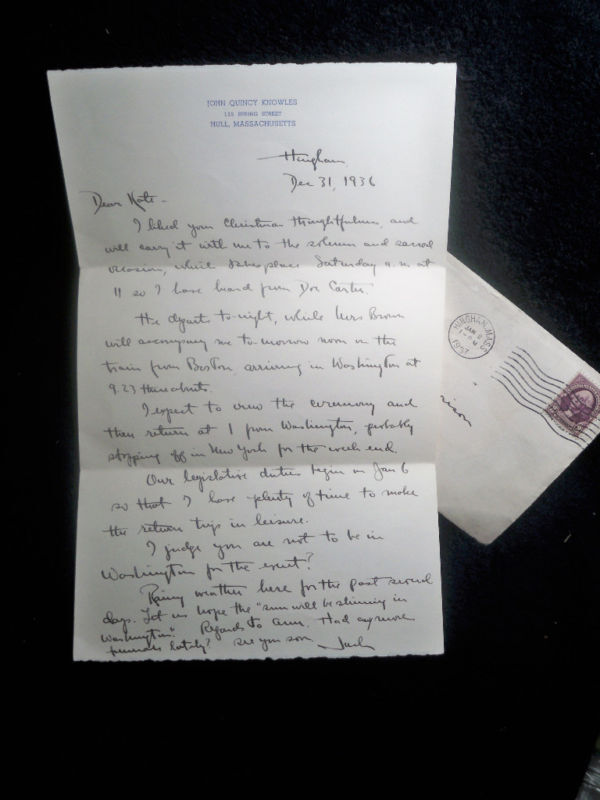 JOHN QUINCY KNOWLES
SPRING STREET
HULL, MASSACHUSETTS
Hingham
Dec 31, 1936
Dear Kate -
I liked your Christmas thoughtfulness, and
will carry it with me to the solemn and sacred
occasion, which takes place Saturday a.m. at
11 so I have heard from Doc Carter.
He departs to-night, while Mrs Brown
will accompany me to-morrow noon on the
train from Boston, arriving in Washington at
9.23 thereabouts.
I expect to view the ceremony and
then return at 1 from Washington, probably
stopping off in New York for the week end.
Our legislative duties begin on Jan 6
so that I have plenty of time to make
the return trip in leisure.
I judge you are not to be in
Washington for the event?
Rainy weather here for the past several
days. Let us hope the "sun will be shining in
Washington." Regards to Ann. Had any more
lately? See you soon. Jack
HINGHAM, MASS.
JAN
1937